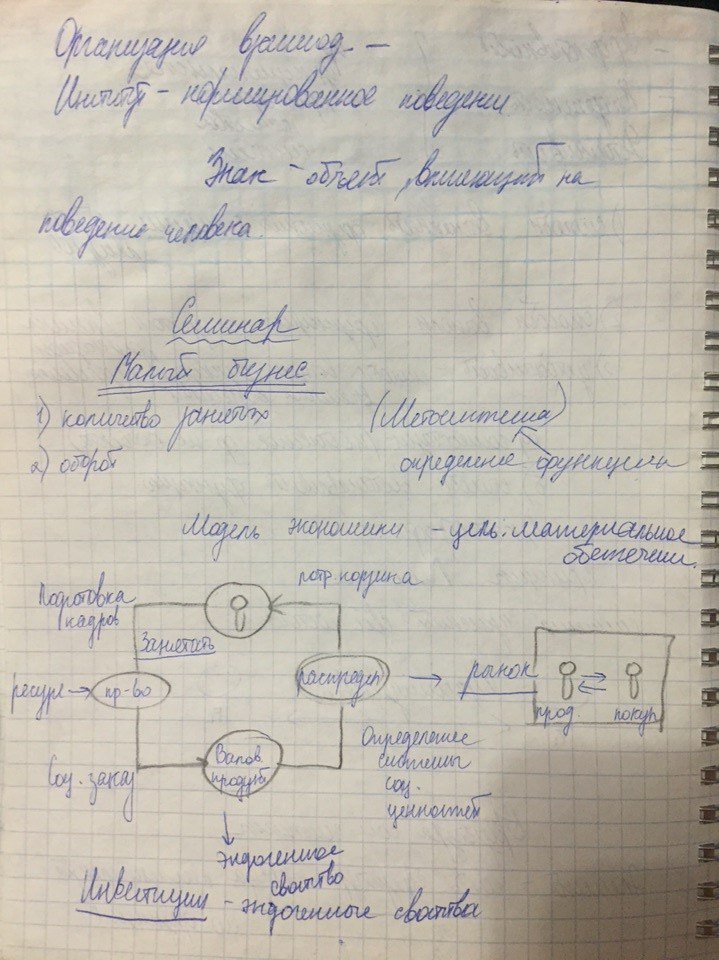 Организация взаимод. —
Институт – нормированное поведение
Знак – объект, влияющий на
поведение человека.
Семинар
Малый бизнес
1) количество занятых
2) оборот
(Метасистема)
определение функции
Модель экономики – цель. материальное
обетечении.
Подготовка
кадров
потр. корзина
Занятость
ресурс →
пр-во
распредел
→ рынок
прод.
покуп.
Соц. заказ
Валов.
продукт
Определение
системы
соц.
ценностей
эндогенное
свойство
Инвестиции – эндогенные свойства